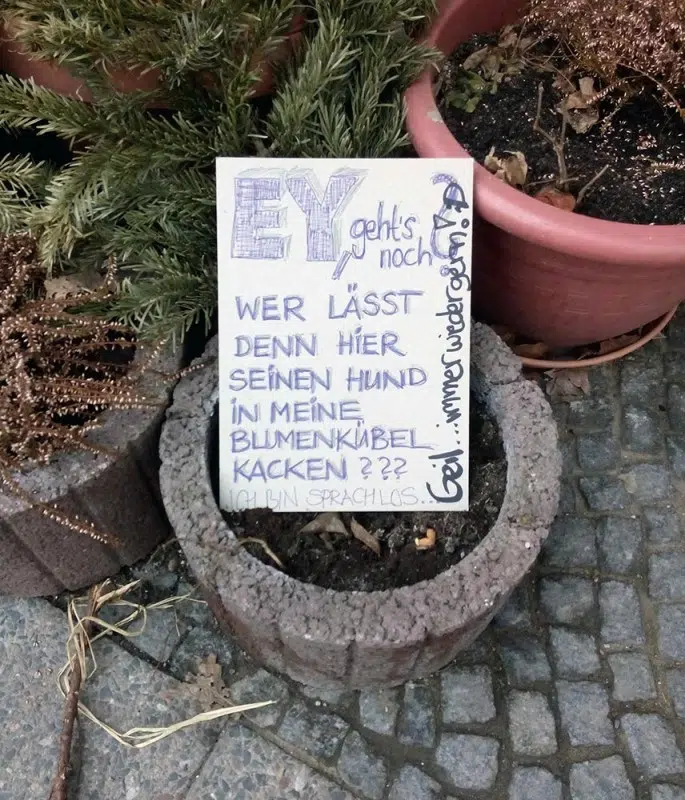 EY,
geht's
noch?
WER LÄSST
DENN HIER
SEINEN HUND
IN MEINE
BLUMENKÜBEL
KACKEN ???
ICH BIN SPRACHLOS...
Geil...immer wieder gern!